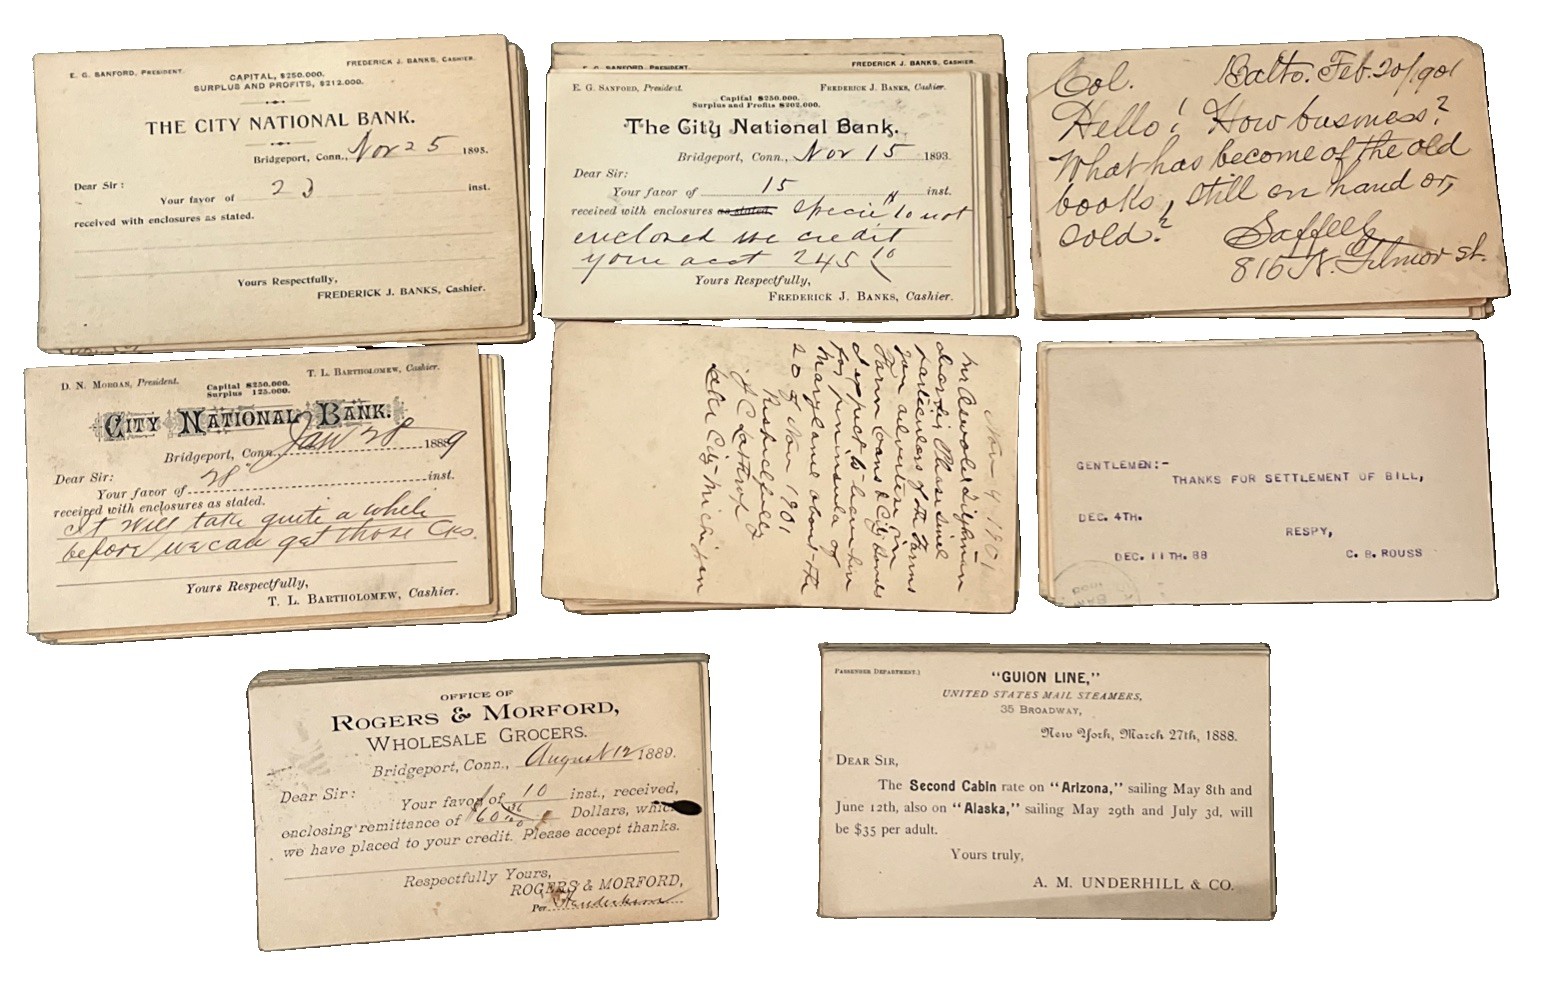 E. G. SANFORD, PRESIDENT.
FREDERICK J. BANKS, CASHIER.
CAPITAL, $250.000.
SURPLUS AND PROFITS, $212.000.
THE CITY NATIONAL BANK.
Bridgeport, Conn., Nov 25 1895.
Dear Sir:
Your favor of 23 inst.
received with enclosures as stated.
Yours Respectfully,
FREDERICK J. BANKS, Cashier.
E. G. SANFORD, PRESIDENT.
FREDERICK J. BANKS, CASHIER.
E. G. SANFORD, President.
FREDERICK J. BANKS, Cashier.
Capital $250.000.
Surplus and Profits $202.000.
The City National Bank.
Bridgeport, Conn., Nov 15 1893.
Dear Sir:
Your favor of 15 inst.
received with enclosures as stated. specie $10 not
enclosed we credit
your acct 245 10
Yours Respectfully,
FREDERICK J. BANKS, Cashier.
Col. Balto. Feb. 20/1901
Hello! How business?
What has become of the old
books, still on hand or,
sold?
Saffell
816 N. Gilmor st.
D. N. MORGAN, President.
T. L. BARTHOLOMEW, Cashier.
Capital $250.000.
Surplus 125.000.
CITY NATIONAL BANK.
Bridgeport, Conn., Jan 28 1889
Dear Sir:
Your favor of 28 inst.
received with enclosures as stated.
It will take quite a while
before we can get those Cks.
Yours Respectfully,
T. L. BARTHOLOMEW, Cashier.
Nov 4 1901
particulars of the Farms
you advertise in
Farm Loans & City Bonds
I expect to leave here
for peninsula of
Maryland about the
20 of Nov 1901
Respectfully
J C Lathrop
City Michigan
GENTLEMEN:-
THANKS FOR SETTLEMENT OF BILL,
DEC. 4TH.
RESPY,
DEC. 11TH. 88
C. B. ROUSS
OFFICE OF
ROGERS & MORFORD,
WHOLESALE GROCERS.
Bridgeport, Conn., August 12 1889.
Dear Sir:
Your favor of 10 inst., received,
enclosing remittance of $60 Dollars, which
we have placed to your credit. Please accept thanks.
Respectfully Yours,
ROGERS & MORFORD,
Per Henderson
PASSENGER DEPARTMENT.)
"GUION LINE,"
UNITED STATES MAIL STEAMERS,
35 BROADWAY,
New York, March 27th, 1888.
DEAR SIR,
The Second Cabin rate on "Arizona," sailing May 8th and
June 12th, also on "Alaska," sailing May 29th and July 3d, will
be $35 per adult.
Yours truly,
A. M. UNDERHILL & CO.